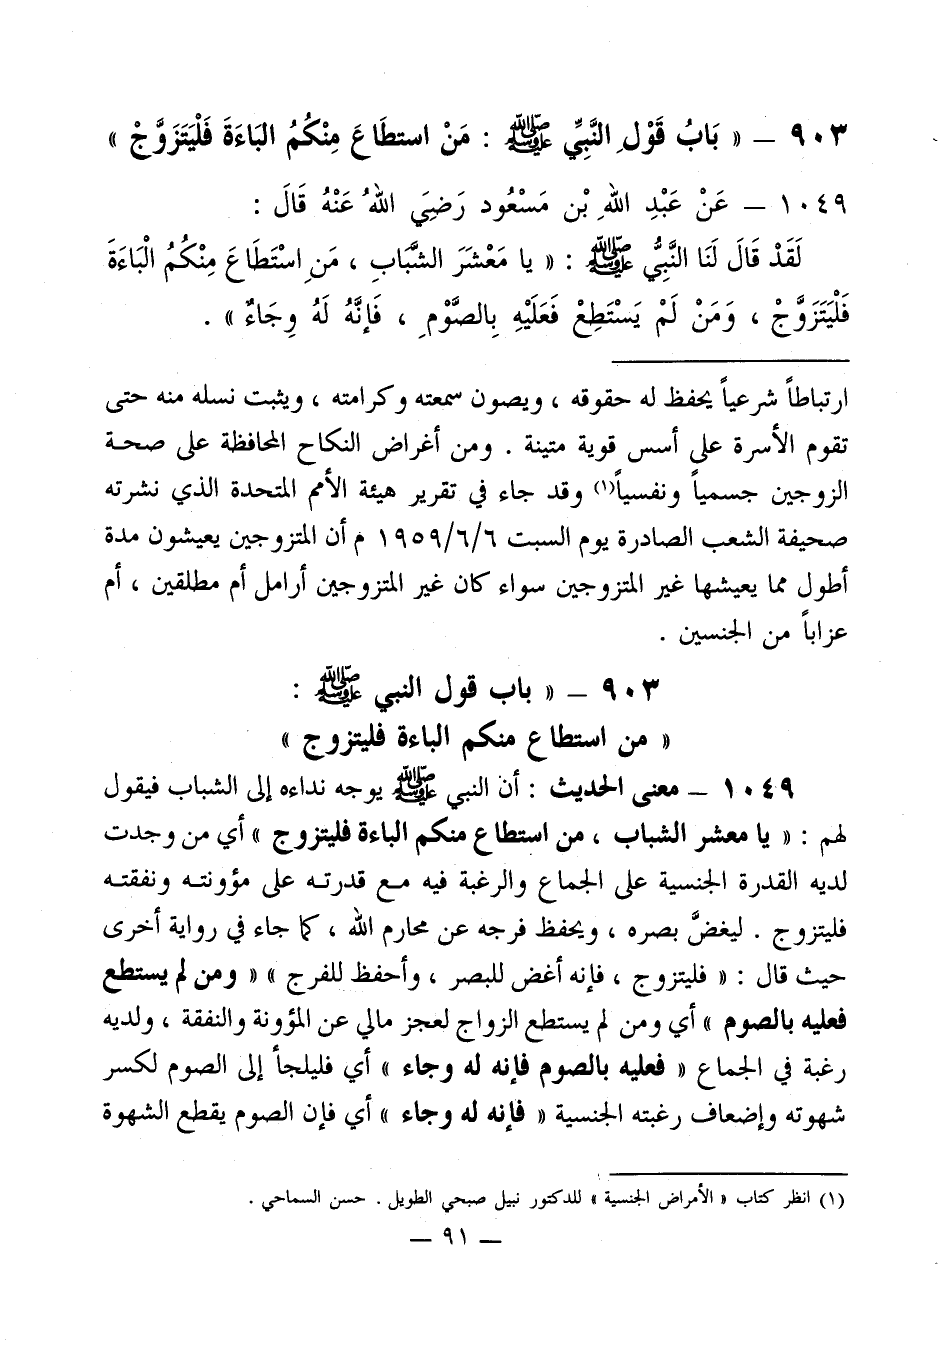 ٩٠٣ – « بَابُ قَوْلِ النَّبِيِّ ﷺ : مَنْ استطَاعَ مِنْكُمُ البَاءَةَ فَلْيَتَزَوَّجْ »
١٠٤٩ – عَنْ عَبْدِ اللهِ بْنِ مَسْعُود رَضِيَ اللهُ عَنْهُ قَالَ :
لَقَدْ قَالَ لَنَا النَّبِيُّ ﷺ : « يا مَعْشَرَ الشَّبَابِ ، مَنِ اسْتَطَاعَ مِنْكُمُ الْبَاءَةَ
فَلْيَتَزَوَّجْ ، وَمَنْ لَمْ يَسْتَطِعْ فَعَلَيْهِ بِالصَّوْمِ ، فَإِنَّهُ لَهُ وِجَاءٌ » .
ارتباطاً شرعياً يحفظ له حقوقه ، ويصون سمعته وكرامته ، ويثبت نسله منه حتى
تقوم الأسرة على أسس قوية متينة . ومن أغراض النكاح المحافظة على صحة
الزوجين جسمياً ونفسياً(١) وقد جاء في تقرير هيئة الأمم المتحدة الذي نشرته
صحيفة الشعب الصادرة يوم السبت ١٩٥٩/٦/٦ م أن المتزوجين يعيشون مدة
أطول مما يعيشها غير المتزوجين سواء كان غير المتزوجين أرامل أم مطلقين ، أم
عزاباً من الجنسين .
٩٠٣ – « باب قول النبي ﷺ :
« من استطاع منكم الباءة فليتزوج »
١٠٤٩ – معنى الحديث : أن النبي ﷺ يوجه نداءه إلى الشباب فيقول
لهم : « يا معشر الشباب ، من استطاع منكم الباءة فليتزوج » أي من وجدت
لديه القدرة الجنسية على الجماع والرغبة فيه مع قدرته على مؤونته ونفقته
فليتزوج . ليغضَّ بصره ، ويحفظ فرجه عن محارم الله ، كما جاء في رواية أخرى
حيث قال : « فليتزوج ، فإنه أغض للبصر ، وأحفظ للفرج » « ومن لم يستطع
فعليه بالصوم » أي ومن لم يستطع الزواج لعجز مالي عن المؤونة والنفقة ، ولديه
رغبة في الجماع « فعليه بالصوم فإنه له وجاء » أي فليلجأ إلى الصوم لكسر
شهوته وإضعاف رغبته الجنسية « فإنه له وجاء » أي فإن الصوم يقطع الشهوة
(١) انظر كتاب « الأمراض الجنسية » للدكتور نبيل صبحي الطويل . حسن السماحي .
– ٩١ –